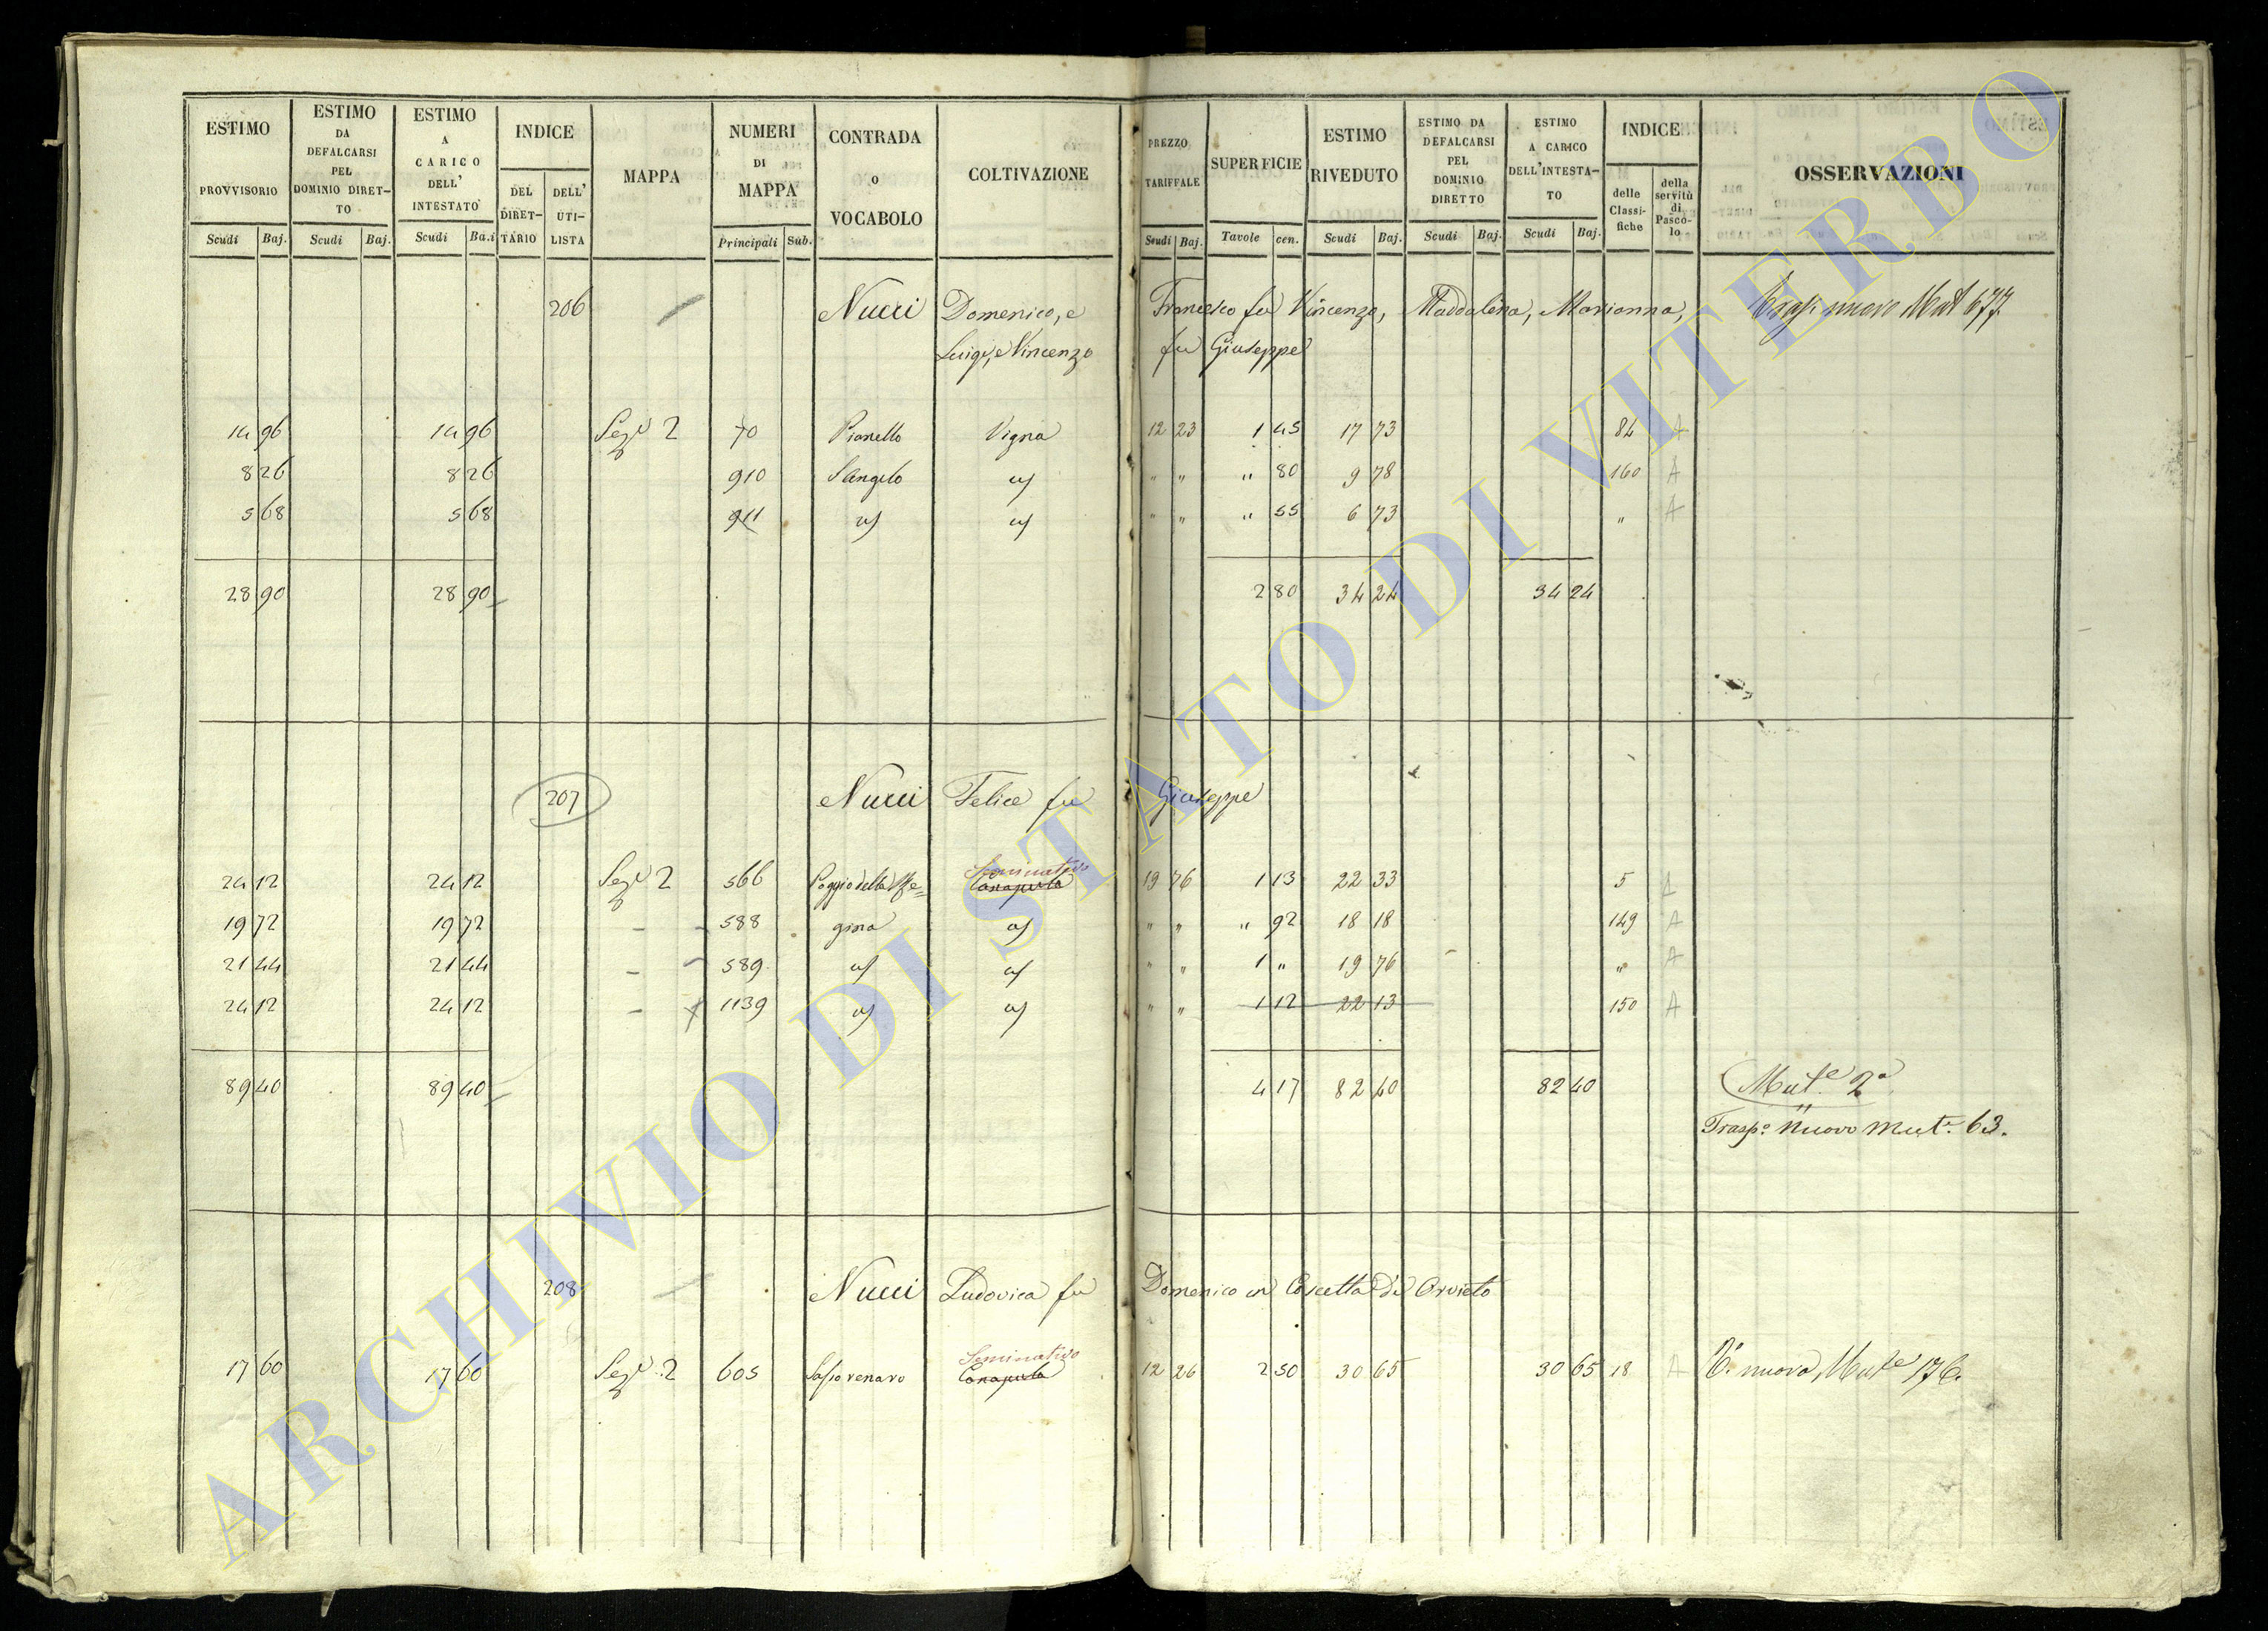 ESTIMO PROVVISORIO Scudi Baj.
ESTIMO DA DEFALCARSI PEL DOMINIO DIRET-TO Scudi Baj.
ESTIMO A CARICO DELL' INTESTATO Scudi Ba.i
INDICE DEL DIRET-TARIO DELL' UTI-LISTA
MAPPA
NUMERI DI MAPPA Principali Sub.
CONTRADA o VOCABOLO
COLTIVAZIONE
PREZZO TARIFFALE Scudi Baj.
SUPERFICIE Tavole cen.
ESTIMO RIVEDUTO Scudi Baj.
ESTIMO DA DEFALCARSI PEL DOMINIO DIRETTO Scudi Baj.
ESTIMO A CARICO DELL'INTESTA-TO Scudi Baj.
INDICE delle Classi-fiche della servitù di Pasco-lo
OSSERVAZIONI
206 Nucci Domenico, e Francesco fu Vincenzo, Maddalena, Marianna, nuovo Mut 677
Luigi, e Vincenzo fu Giuseppe
14 96 14 96 Sez.e 2 70 Pianello Vigna 12 23 1 45 17 73 84 A
8 26 8 26 910 S Angelo " " " 80 9 78 160 A
5 68 5 68 911 " " " 55 6 73 " A
28 90 28 90 2 80 34 24 34 24
207 Nucci Felice fu Giuseppe
Seminativo
24 12 24 12 Sez.e 2 566 Poggio della Re= Canapula 19 76 1 13 22 33 5 A
19 72 19 72 - 588 gina " " " 92 18 18 149 A
21 44 21 44 - 589 " " 1 " 19 76 " A
24 12 24 12 - 1139 " " 1 12 22 13 150 A
89 40 89 40 4 17 82 40 82 40 Mut.e 2a
Trasp.o nuovo Mut.e 63.
208 Nucci Ludovica fu Domenico in Coscetta di Orvieto
Seminativo
17 60 17 60 Sez.e 2 605 Canapula 12 26 2 50 30 65 30 65 18 A nuova Mut.e 176.
ARCHIVIO DI STATO DI VITERBO